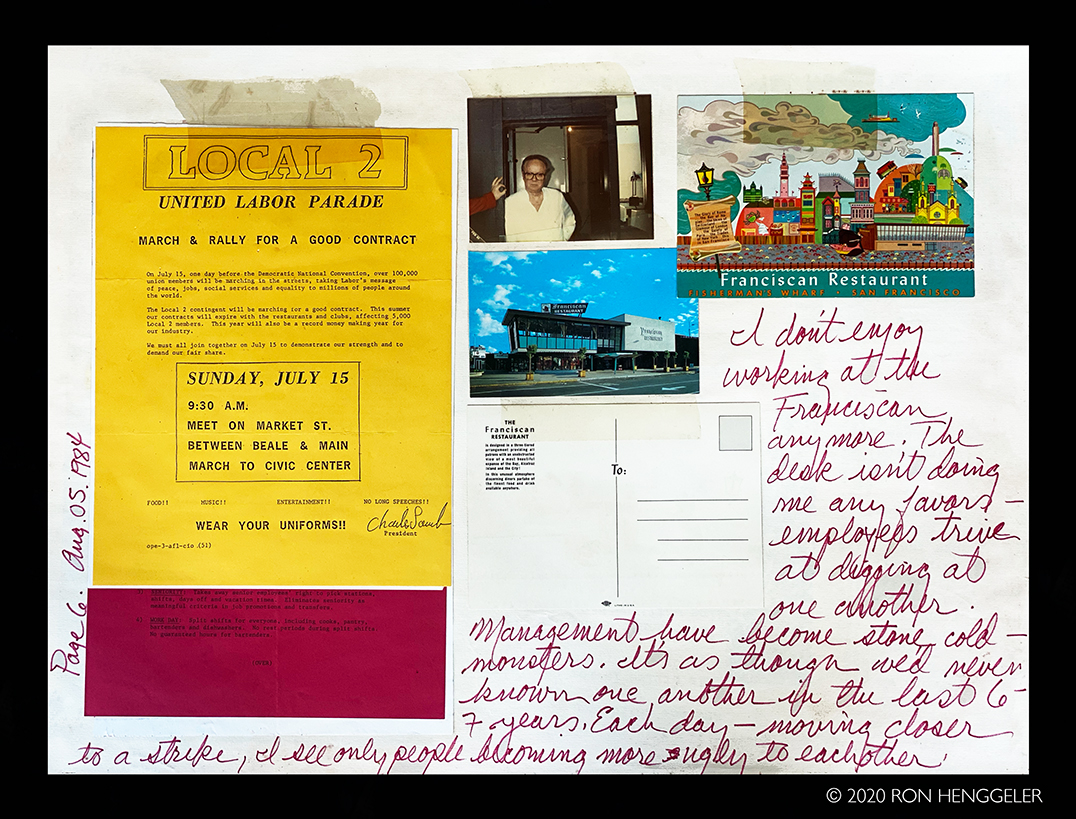 LOCAL 2
UNITED LABOR PARADE
MARCH & RALLY FOR A GOOD CONTRACT
On July 15, one day before the Democratic National Convention, over 100,000
union members will be marching in the streets, taking Labor's message
of peace, jobs, social services and equality to millions of people around
the world.
The Local 2 contingent will be marching for a good contract. This summer
our contracts will expire with the restaurants and clubs, affecting 5,000
Local 2 members. This year will also be a record money making year for
our industry.
We must all join together on July 15 to demonstrate our strength and to
demand our fair share.
SUNDAY, JULY 15
9:30 A.M.
MEET ON MARKET ST.
BETWEEN BEALE & MAIN
MARCH TO CIVIC CENTER
FOOD!! MUSIC!! ENTERTAINMENT!! NO LONG SPEECHES!!
WEAR YOUR UNIFORMS!!
Charles Lamb
President
ope-3-afl-cio (51)
shifts, days off and vacation times. Eliminates seniority as
meaningful criteria in job promotions and transfers.
WORK DAY: Split shifts for everyone, including cooks, pantry,
bartenders and dishwashers. No rest periods during split shifts.
No guaranteed hours for bartenders.
(OVER)
Page 6. Aug. 05. 1984
Franciscan Restaurant
FISHERMANS WHARF · SAN FRANCISCO
FRANCISCAN
RESTAURANT
Franciscan
RESTAURANT
THE
Franciscan
RESTAURANT
is designed in a three-tiered
arrangement providing all
patrons with an unobstructed
view of a most beautiful
expanse of the Bay, Alcatraz
Island and the City!
In this unusual atmosphere
discerning diners partake of
the finest food and drink
available anywhere.
To:
I don't enjoy
working at the
Franciscan
anymore. The
desk isn't doing
me any favors –
employees trive
at digging at
one another.
Management have become stone cold –
monsters. It's as though we'd never
known one another in the last 6-
7 years. Each day – moving closer
to a strike, I see only people becoming more ugly to each other.
© 2020 RON HENGGELER